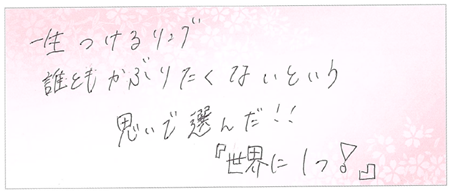 一生つけるリング
誰ともかぶりたくないという
思いで選んだ!!
『世界に1つ!』